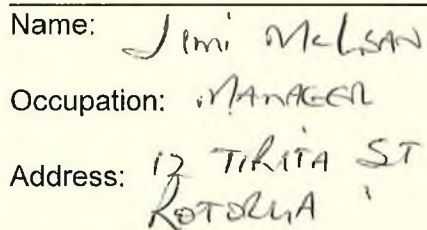 Name: Jimi McLean
Occupation: MANAGER
Address: 12 TIRITA ST
ROTORUA